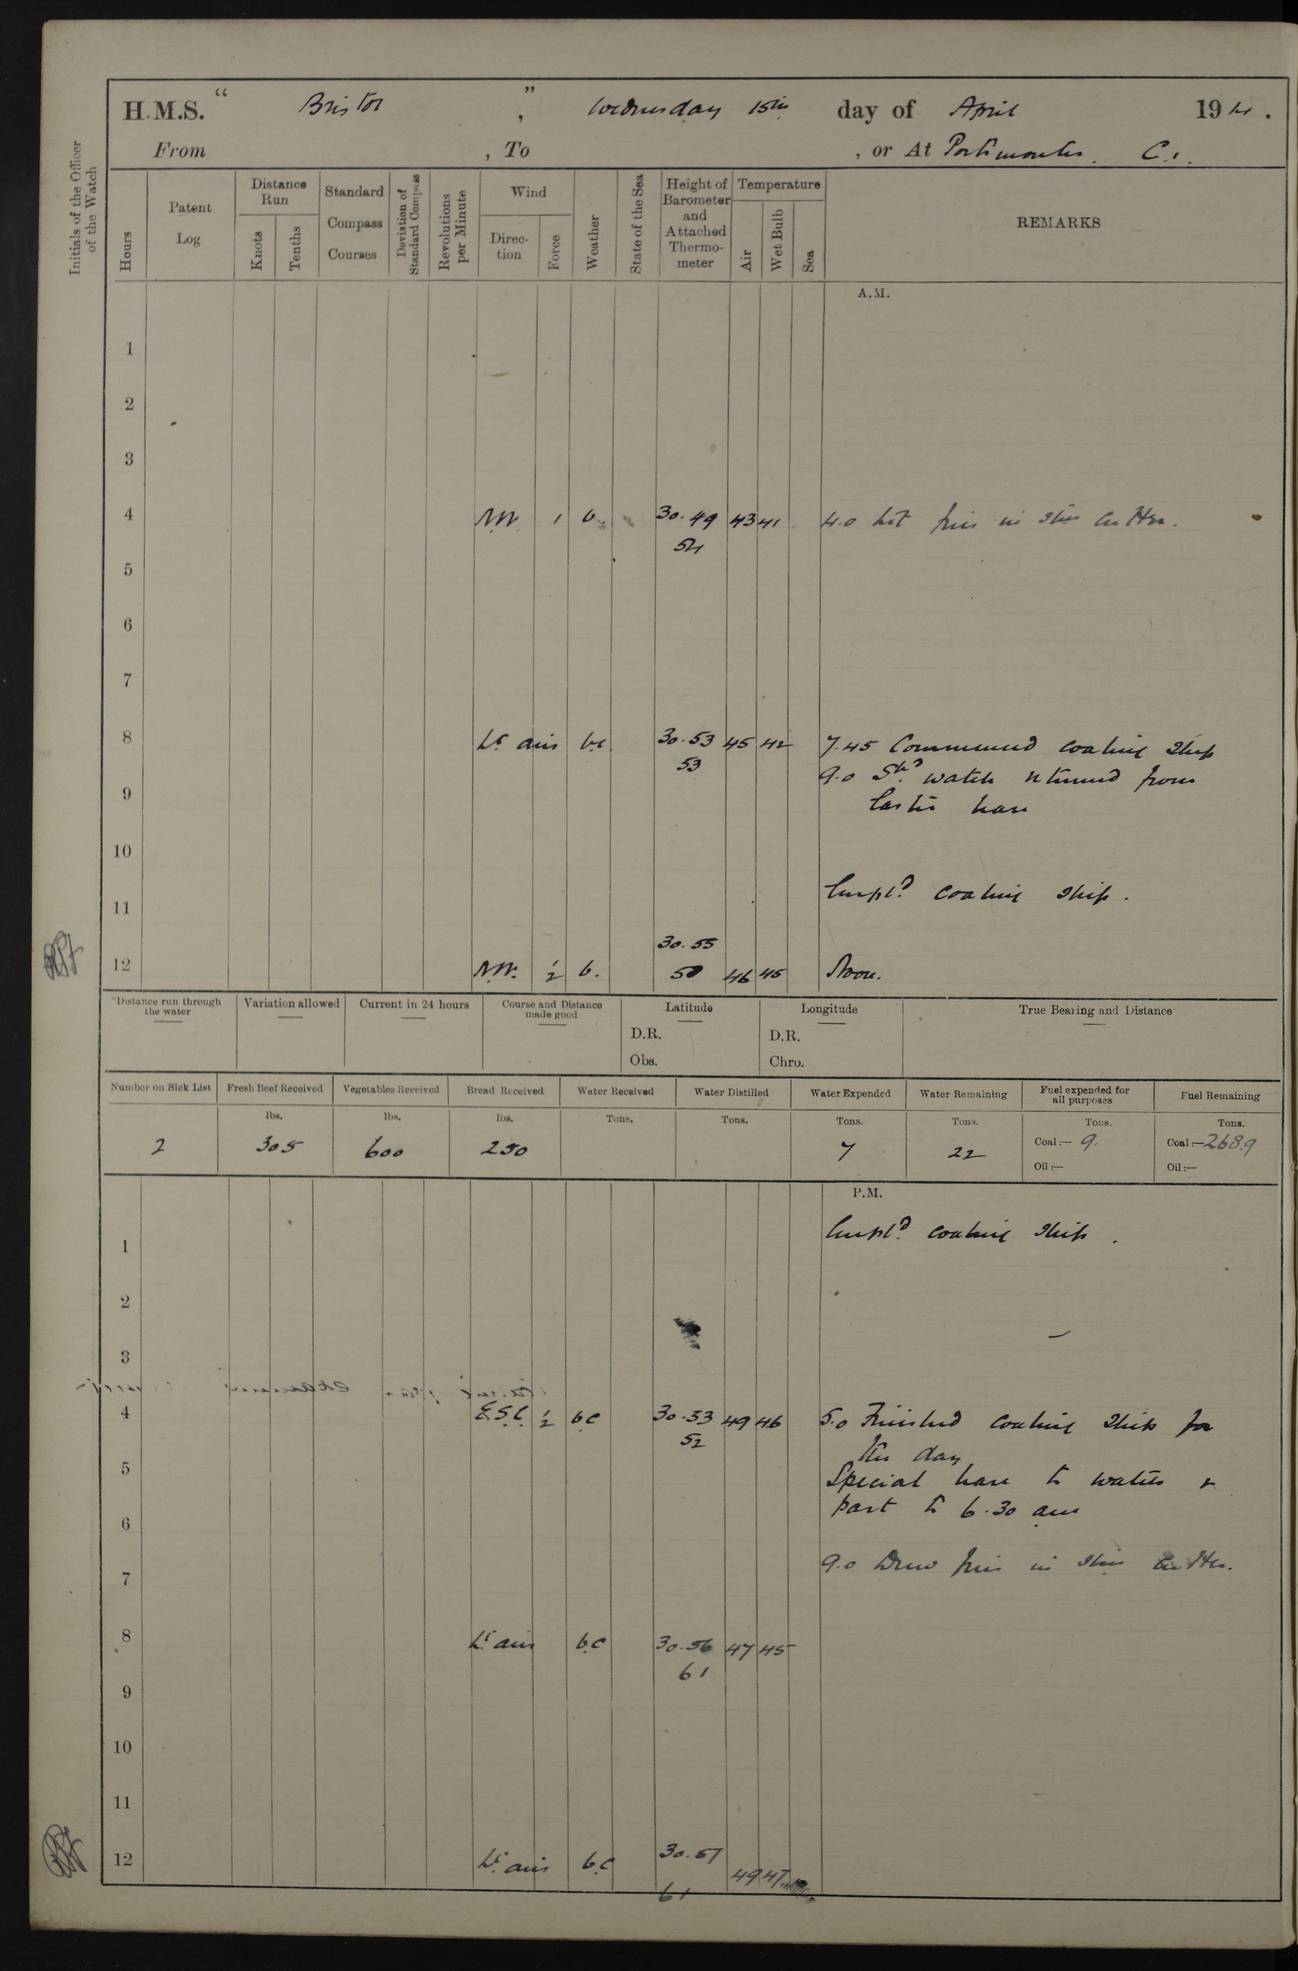 H.M.S. “ Bristol ” , Wednesday 15th day of April 1914.
From , To , or At Portsmouth. C.1.
Initials of the Officer of the Watch
Hours
Patent Log
Distance Run
Knots
Tenths
Standard Compass Courses
Deviation of Standard Compass
Revolutions per Minute
Wind
Direction
Force
Weather
State of the Sea
Height of Barometer and Attached Thermometer
Temperature
Air
Wet Bulb
Sea
REMARKS
A.M.
1
2
3
4 NW. 1 b. 30.49 43 41 4.0 Lit fires in Stm Cutter.
54
5
6
7
8 Lt airs bc 30.53 45 42 7.45 Commenced coaling Ship
53 9.0 Stbd watch returned from
9 Easter leave
10
Empld coaling Ship.
11
30.55
12 NW. 1/2 b. 50 46 45 Noon.
Distance run through the water
Variation allowed
Current in 24 hours
Course and Distance made good
Latitude
D.R.
Obs.
Longitude
D.R.
Chro.
True Bearing and Distance
Number on Sick List Fresh Beef Received Vegetables Received Bread Received Water Received Water Distilled Water Expended Water Remaining Fuel expended for all purposes Fuel Remaining
lbs. lbs. lbs. Tons. Tons. Tons. Tons. Tons. Tons.
2 305 600 250 7 22 Coal:— 9. Coal:—2689
Oil:— Oil:—
P.M.
Empld coaling Ship.
1
2
3
4 E.S.E. 1/2 bc 30.53 49 46 5.0 Finished coaling Ship for
52 the day
5 Special leave to watch &
part to 6.30 am
6
9.0 Drew fires in Stm Cutter.
7
8 Lt airs bc 30.56 47 45
61
9
10
11
12 Lt airs bc 30.57 49 47
61